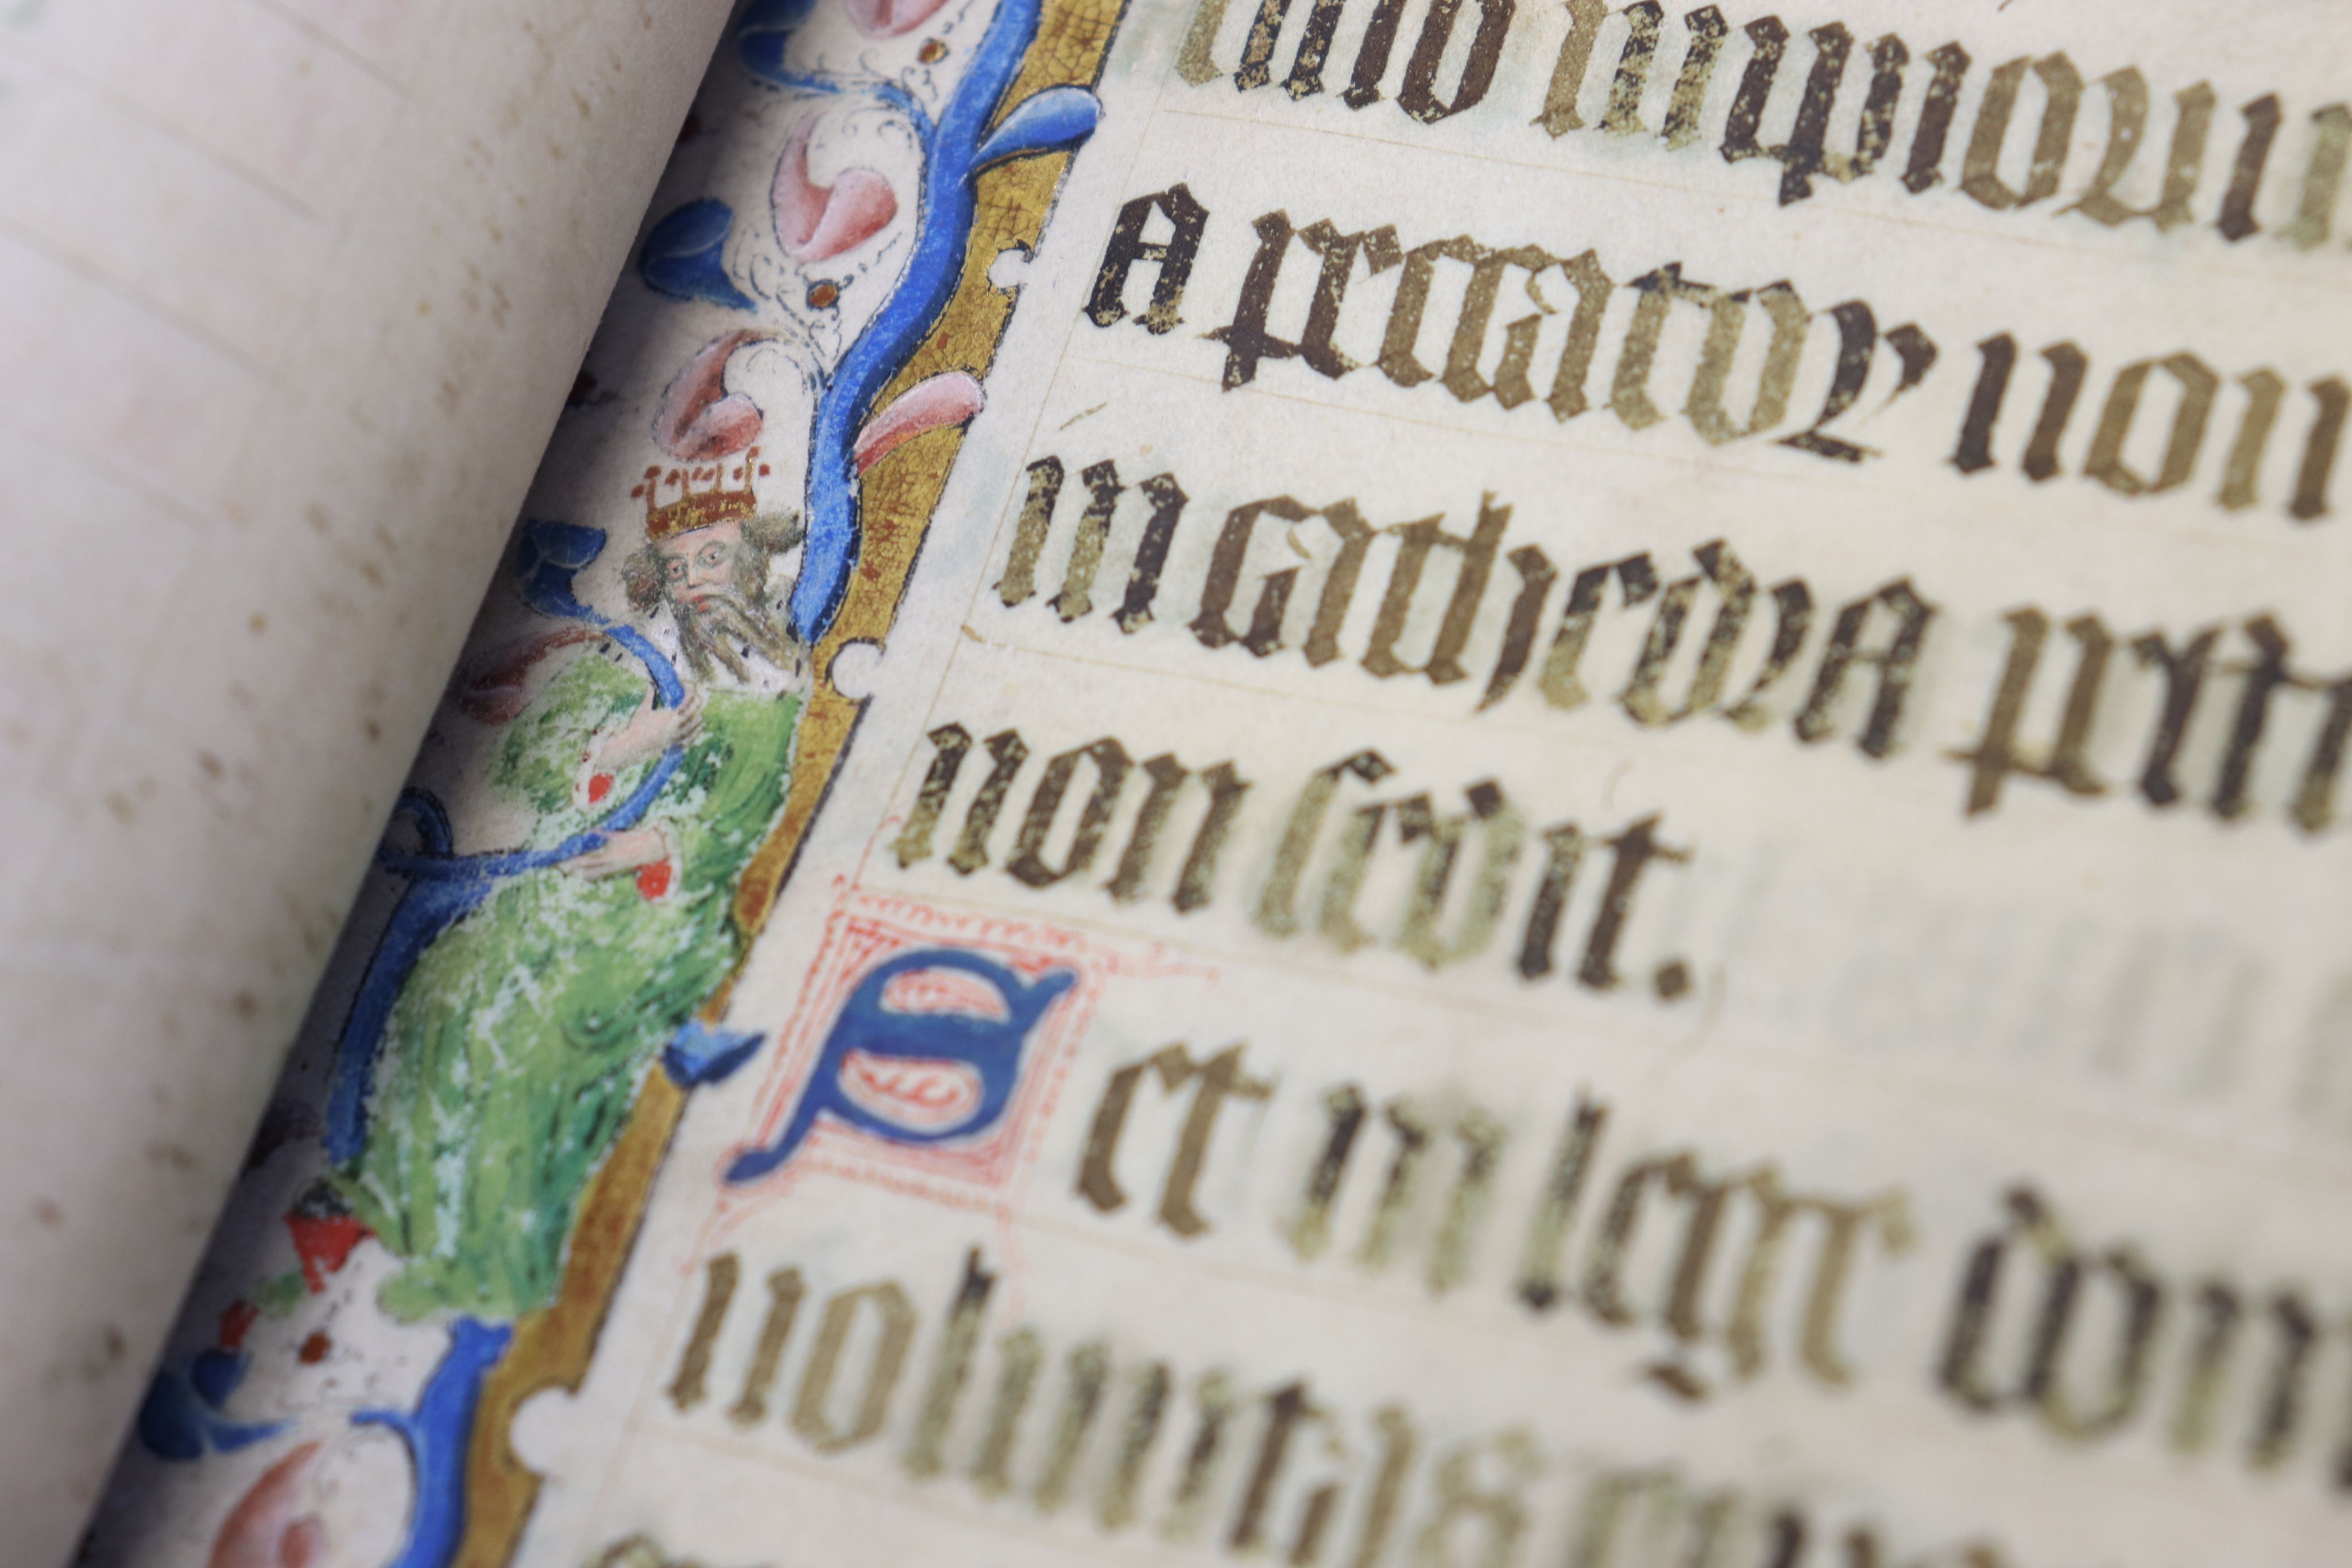 impiorum
A peccatoꝝ non
in cathedrA pest
non sedit.
Set in lege dom
voluntas eius